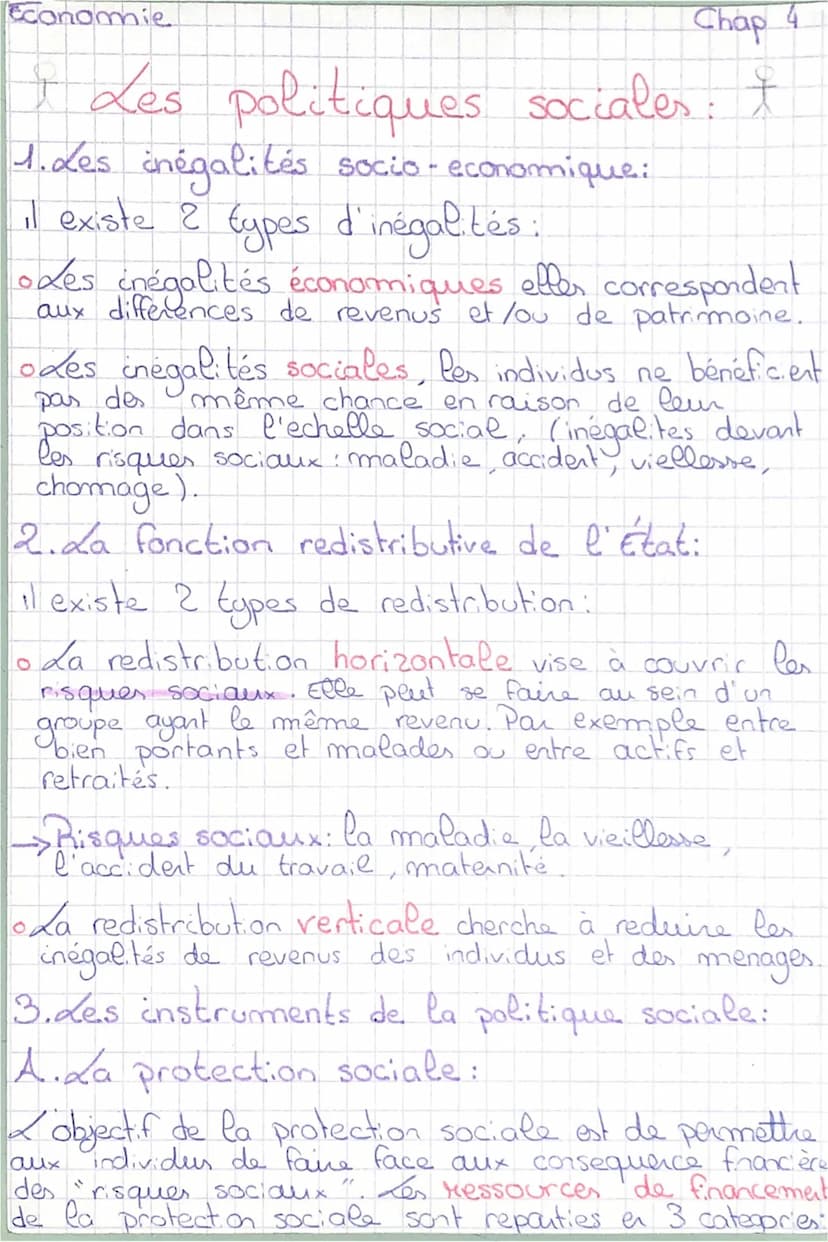 économie
Chap 4
Les politiques sociales :
1. Les inégalités socio-economique :
il existe 2 types d'inégalités :
Les inégalités économiques elles correspondent
aux différences de revenus et/ou de patrimoine.
Les inégalités sociales, les individus ne bénéficient
pas des même chance en raison de leur
position dans l'echelle social, (inégalites devant
les risques sociaux : maladie, accident, viellesse,
chomage).
2. La fonction redistributive de l'État :
il existe 2 types de redistribution :
La redistribution horizontale vise à couvrir les
risques sociaux. Elle peut se faire au sein d'un
groupe ayant le même revenu. Par exemple entre
bien portants et malades ou entre actifs et
retraités.
→ Risques sociaux : la maladie, la vieillesse,
l'accident du travail, maternité.
La redistribution verticale cherche à reduire les
inégalités de revenus des individus et des menages.
3. Les instruments de la politique sociale :
A. La protection sociale :
L'objectif de la protection sociale est de permettre
aux individus de faire face aux consequence financière
des "risques sociaux". Les ressources de financement
de la protection sociale sont reparties en 3 categories :